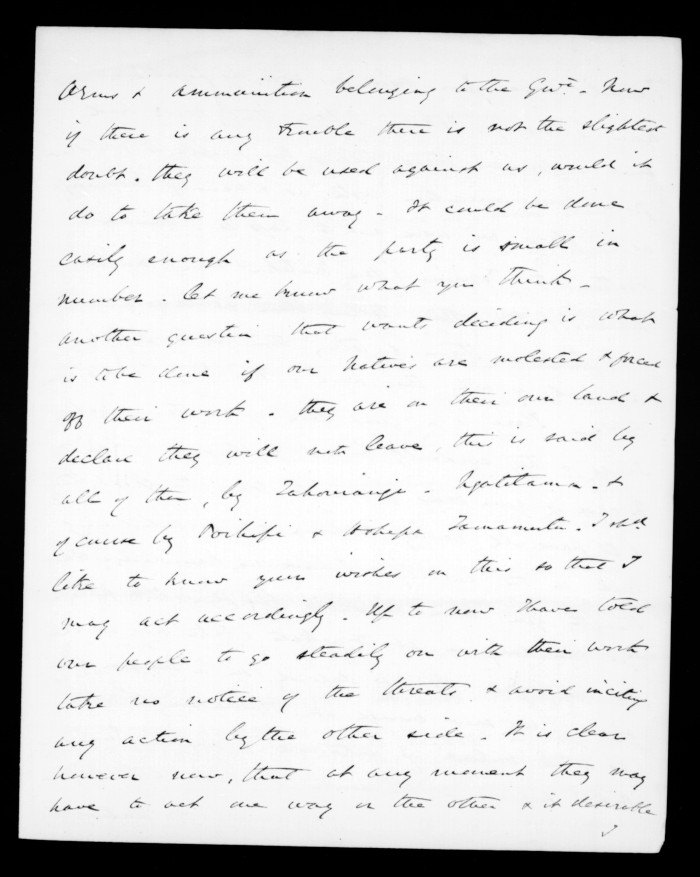 Arms & ammunition belonging to the Govt. - Now
if there is any trouble there is not the slightest
doubt. they will be used against us, would it
do to take them away - It could be done
easily enough as the party is small in
number. let me know what you think -
another question that wants deciding is what
is to be done if our Natives are molested & forced
off their work. they are on their own land &
declare they will not leave, this is said by
all of them, by Tahourangi - Ngatitama - &
of course by Poihipi & Hohepa Tamamutu. I shd
like to know your wishes on this so that I
may act accordingly. Up to now I have told
our people to go steadily on with their work
take no notice of the threats & avoid inciting
any action by the other side. It is clear
however now, that at any moment they may
have to act one way or the other & it desirable